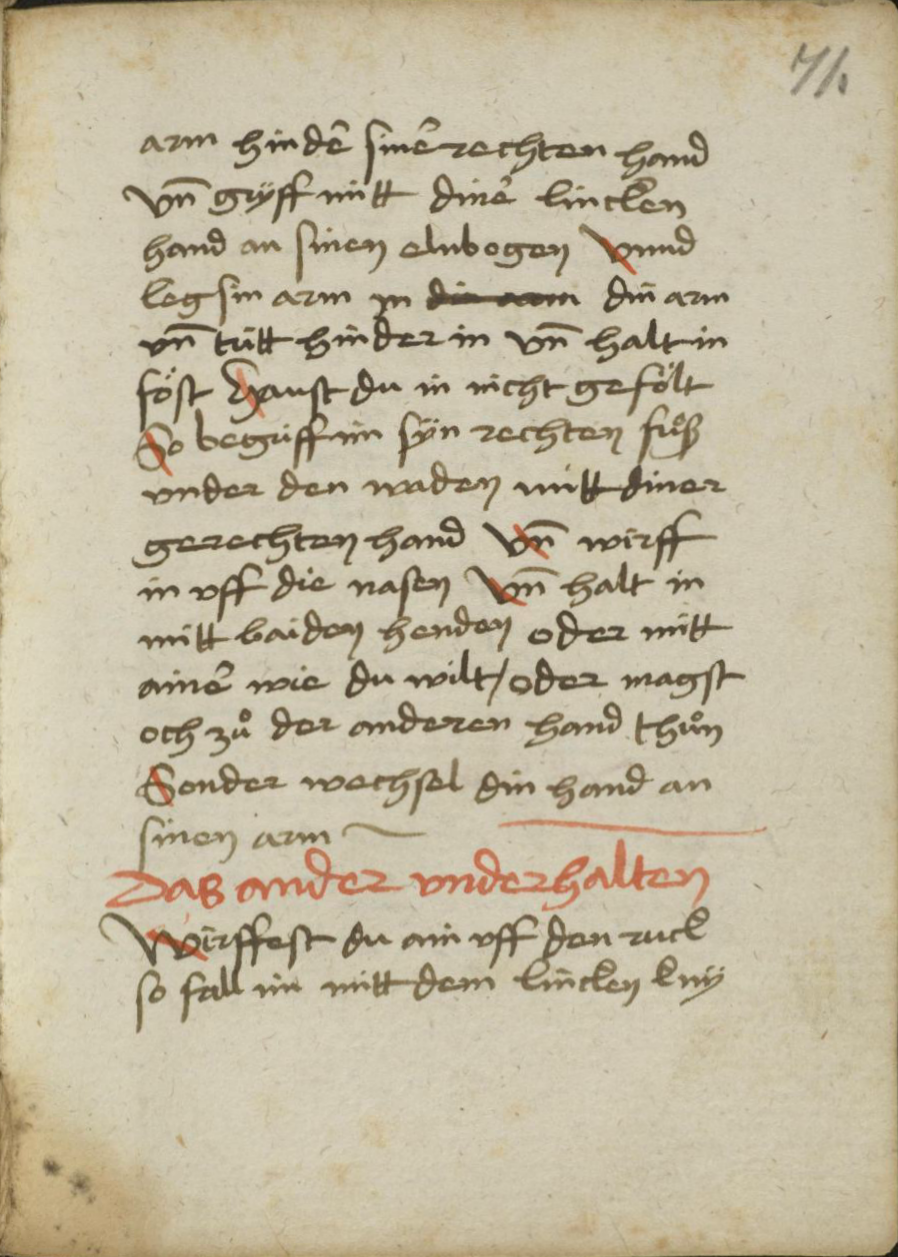 71.
arm hindē sinē rechten hand
vn̄ gryff mitt dinē lincken
hand an sinen elnbogen Vnnd
leg sin arm in din arm
vn̄ tritt hinder in vn̄ halt in
föst Haust du in nicht gefölt
So begriff im sÿn rechten fuͦß
vnder den waden mitt diner
gerechten hand Vn̄ wirff
in vff die nasen Vn̄ halt in
mitt baiden henden oder mitt
ainē wie du wilt / oder magst
och zuͦ der anderen hand thuͦn
Sonder wechsel din hand an
sinen arm
Das ander vnderhalten
Wirffest du ain vff den ruck
so fall im mitt dem lincken knÿ